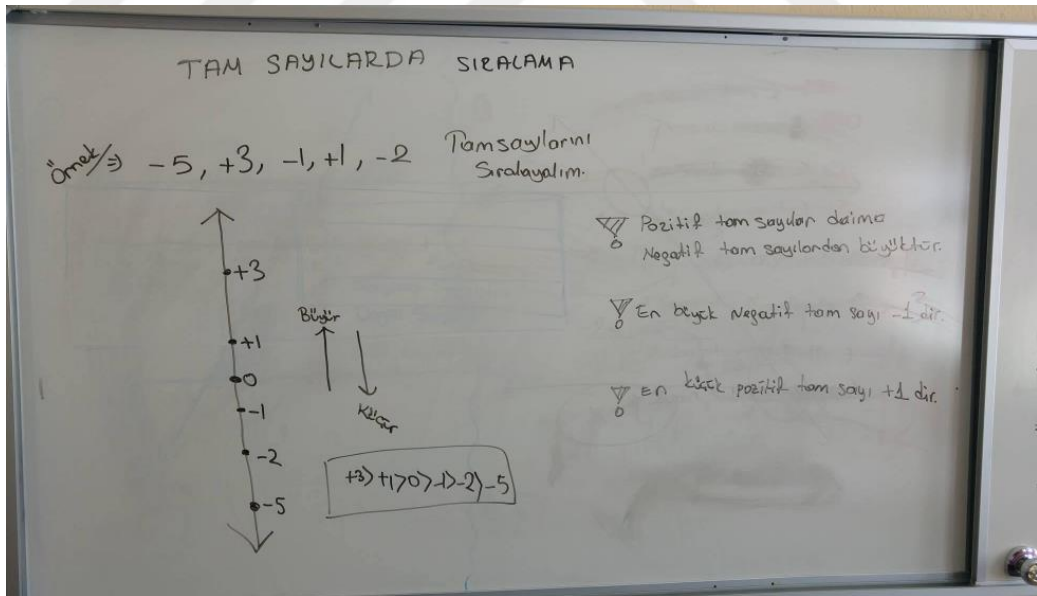 TAM SAYILARDA SIRALAMA
Örnek/⇒ -5, +3, -1, +1, -2 Tamsayılarını
Sıralayalım.
+3
+1
0
-1
-2
-5
Büyür
Küçür
+3>+1>0>-1>-2>-5
Pozitif tam sayılar daima
Negatif tam sayılardan büyüktür.
En büyük Negatif tam sayı -1 dir.
En küçük pozitif tam sayı +1 dir.